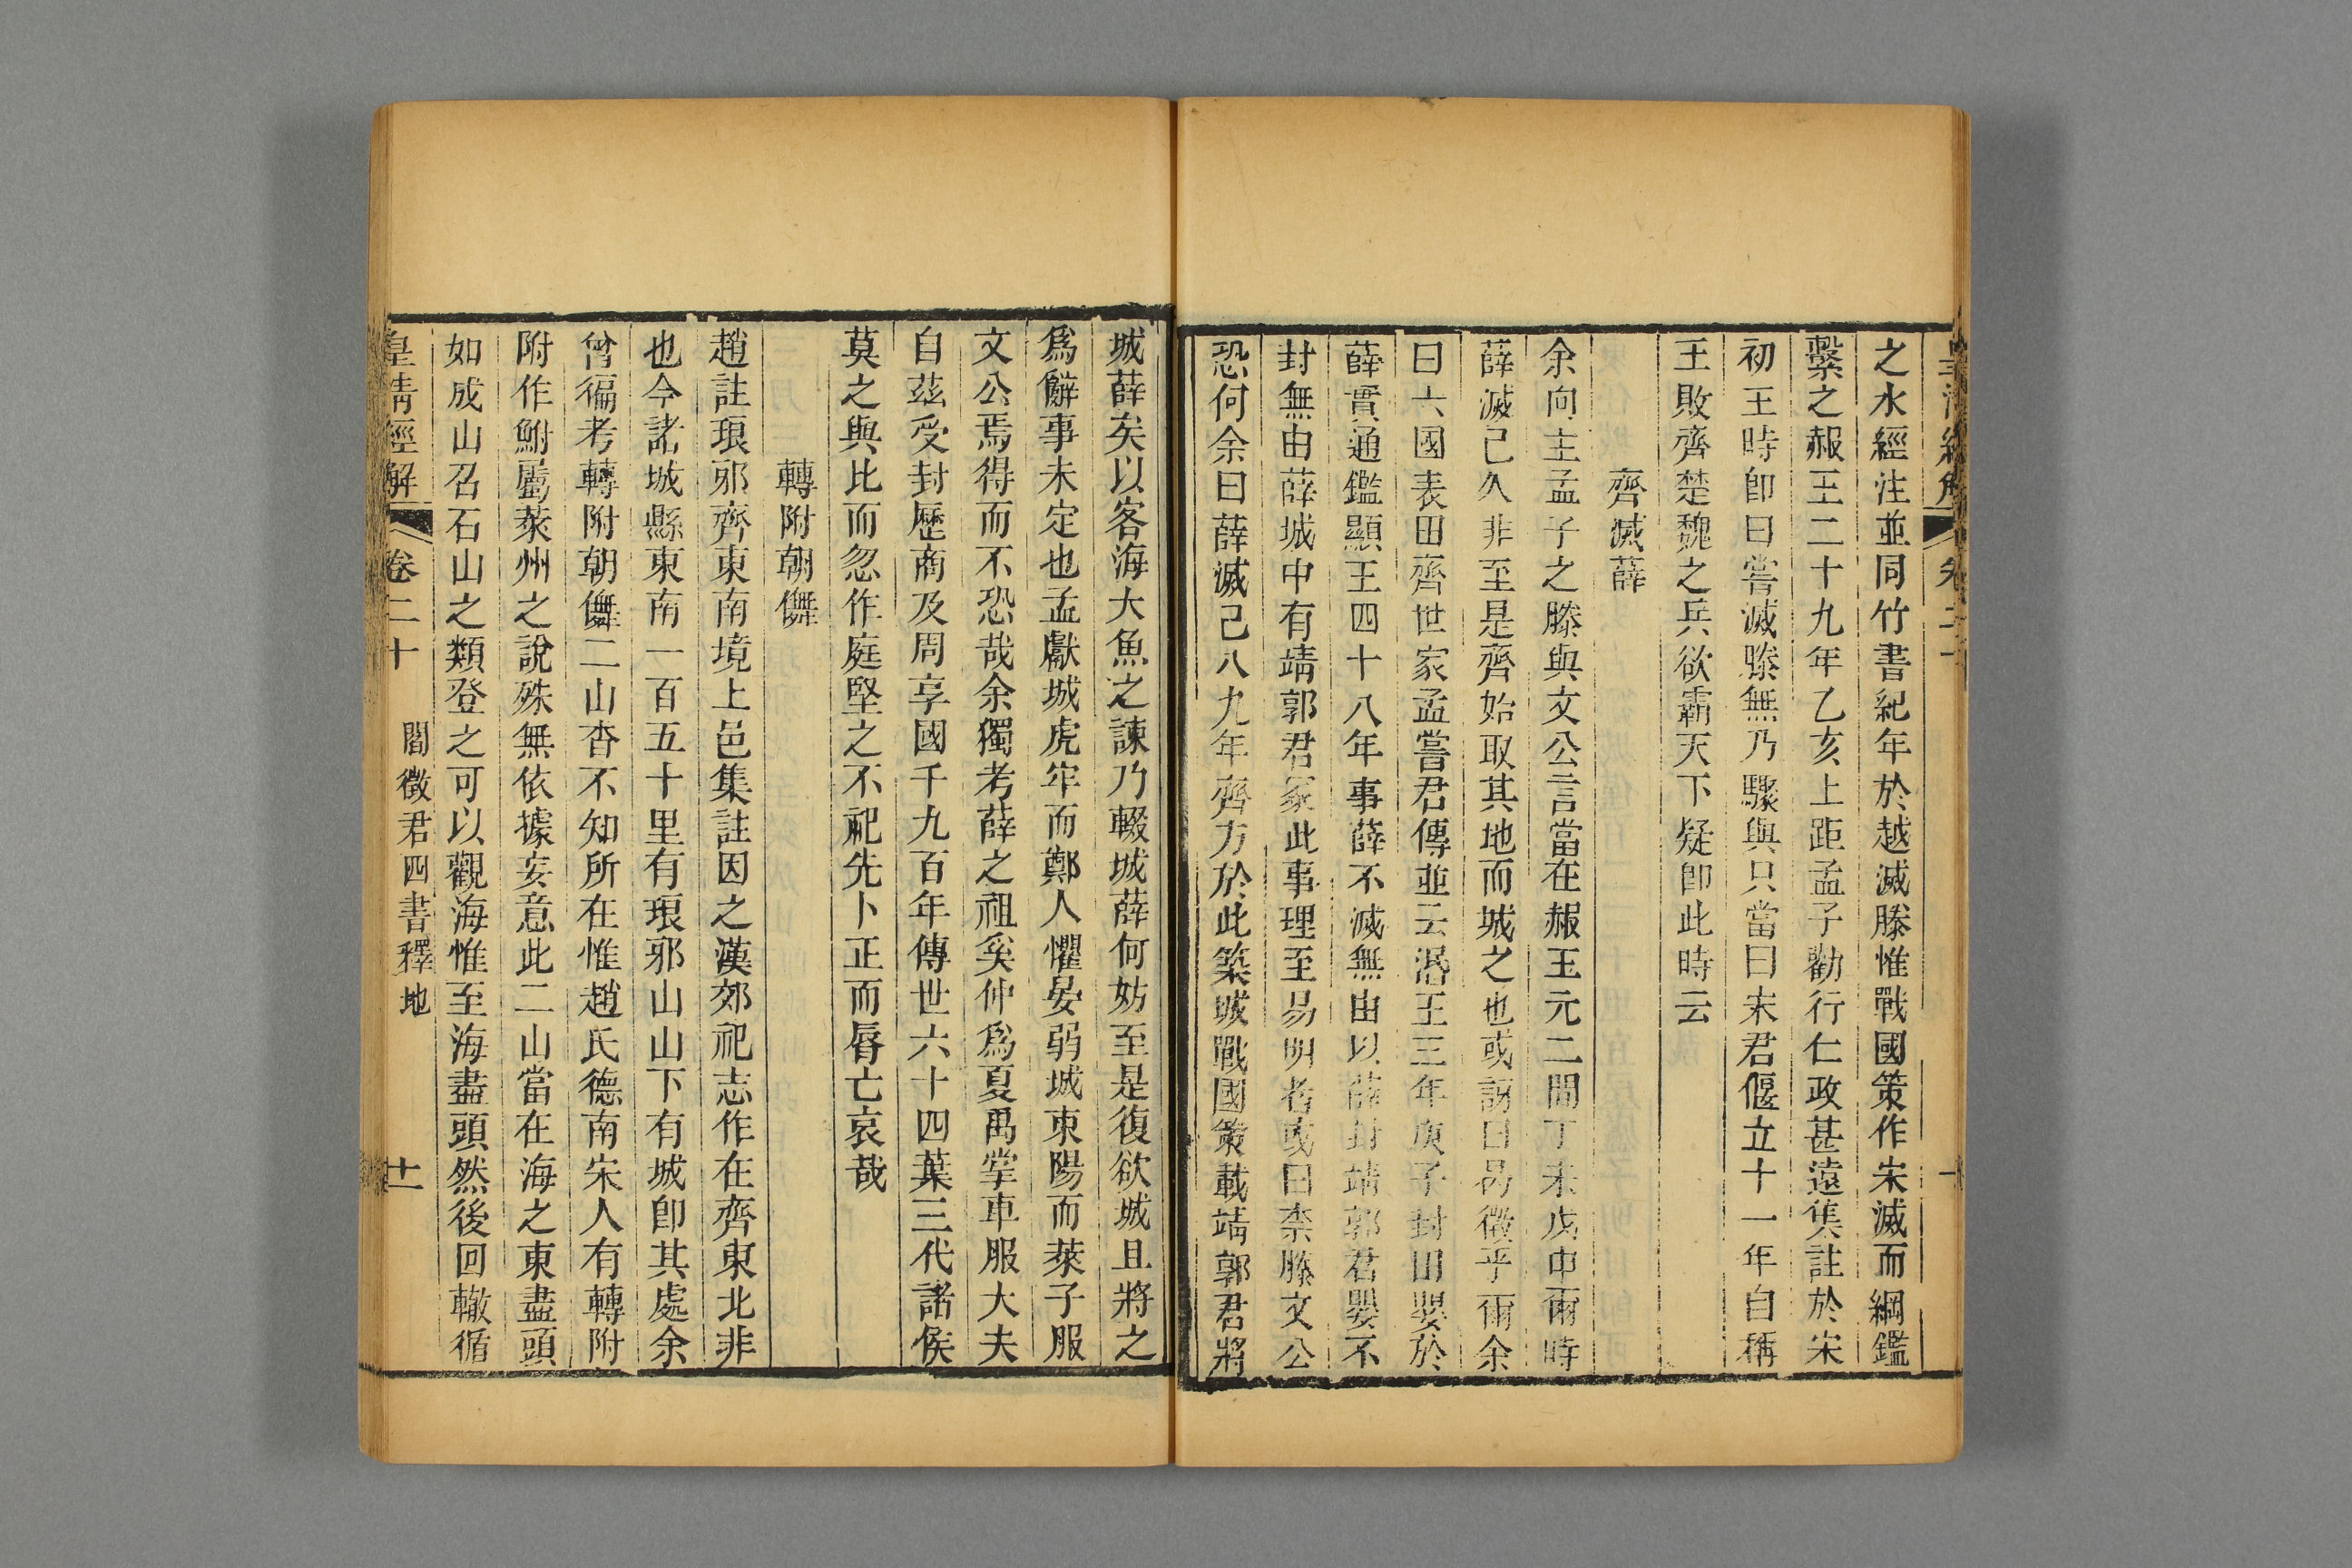 之水經注並同竹書紀年於越滅滕惟戰國策作宋滅而綱鑑
繫之赧王二十九年乙亥上距孟子勸行仁政甚遠集註於宋
初王時卽曰嘗滅滕無乃驟與只當曰宋君偃立十一年自稱
王敗齊楚魏之兵欲霸天下疑卽此時云
齊滅薛
余向主孟子之滕與文公言當在赧王元二間丁未戊申爾時
薛滅已久非至是齊始取其地而城之也或訝曰曷徵乎爾余
曰六國表田齊世家孟嘗君傳並云湣王三年庚子封田嬰於
薛實通鑑顯王四十八年事薛不滅無由以薛封靖郭君嬰不
封無由薛城中有靖郭君冢此事理至易明者或曰柰滕文公
恐何余曰薛滅已八九年齊方於此築城戰國策載靖郭君將
城薛矣以客海大魚之諫乃輟城薛何妨至是復欲城且將之
爲懈事未定也孟獻城虎牢而鄭人懼晏弱城東陽而萊子服
文公焉得而不恐哉余獨考薛之祖奚仲爲夏禹掌車服大夫
自茲受封歷商及周享國千九百年傳世六十四葉三代諸侯
莫之與比而忽作庭堅之不祀先卜正而脣亡哀哉
轉附朝儛
趙註琅邪齊東南境上邑集註因之漢郊祀志作在齊東北非
也今諸城縣東南一百五十里有琅邪山山下有城卽其處余
曾徧考轉附朝儛二山杳不知所在惟趙氏德南宋人有轉附
附作鮒屬萊州之說殊無依據妄意此二山當在海之東盡頭
如成山召石山之類登之可以觀海惟至海盡頭然後回轍循
皇清經解 卷二十 閻徵君四書釋地 十一